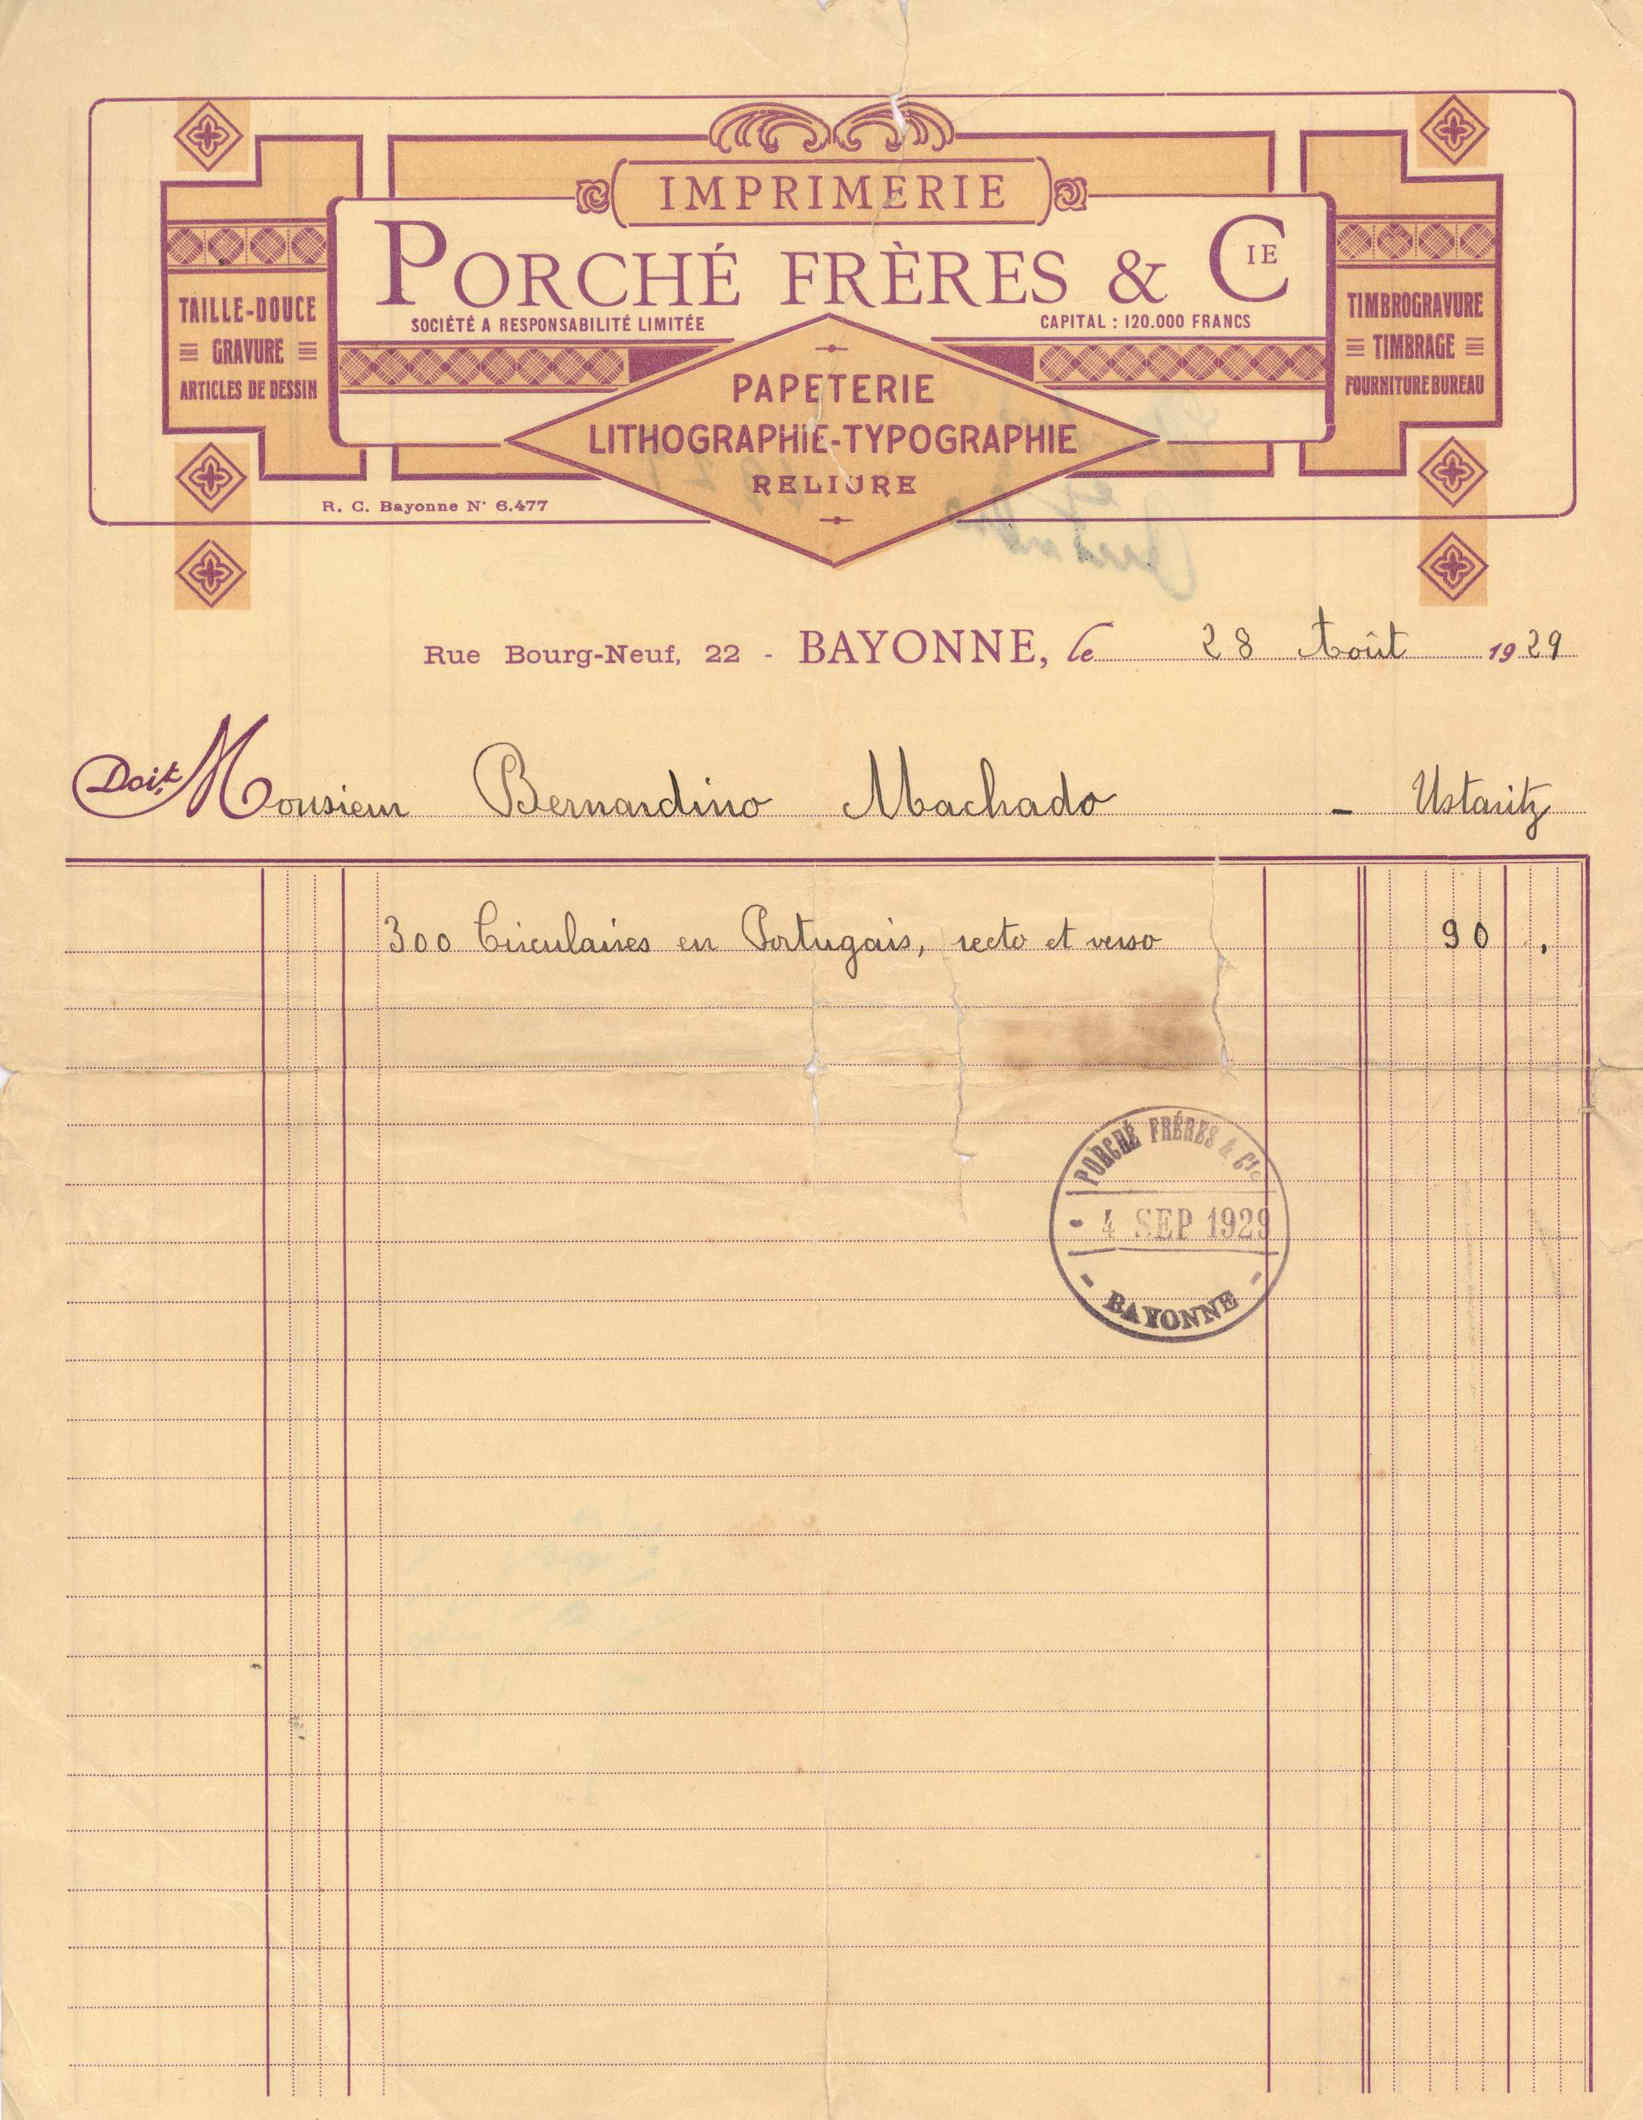 IMPRIMERIE
PORCHÉ FRÈRES & CIE
SOCIÉTÉ A RESPONSABILITÉ LIMITÉE
CAPITAL : 120.000 FRANCS
TAILLE-DOUCE
GRAVURE
ARTICLES DE DESSIN
TIMBROGRAVURE
TIMBRAGE
FOURNITURE BUREAU
PAPETERIE
LITHOGRAPHIE-TYPOGRAPHIE
RELIURE
R. C. Bayonne N° 6.477
Rue Bourg-Neuf, 22 - BAYONNE, le 28 Août 1929
Doit Monsieur Bernardino Machado - Ustaritz
300 Circulaires en Portugais, recto et verso 90 ,
PORCHÉ FRÉRES & Cie
4 SEP 1929
BAYONNE